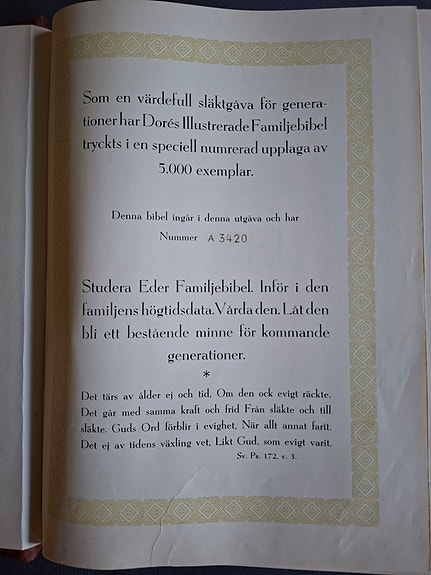 Som en värdefull släktgåva för genera-
tioner har Dorés Illustrerade Familjebibel
tryckts i en speciell numrerad upplaga av
5.000 exemplar.
Denna bibel ingår i denna utgåva och har
Nummer A 3420
Studera Eder Familjebibel. Inför i den
familjens högtidsdata. Vårda den. Låt den
bli ett bestående minne för kommande
generationer.
*
Det tärs av ålder ej och tid, Om den ock evigt räckte.
Det går med samma kraft och frid Från släkte och till
släkte. Guds Ord förblir i evighet, När allt annat farit.
Det ej av tidens växling vet, Likt Gud, som evigt varit.
Sv. Ps. 172, v. 3.